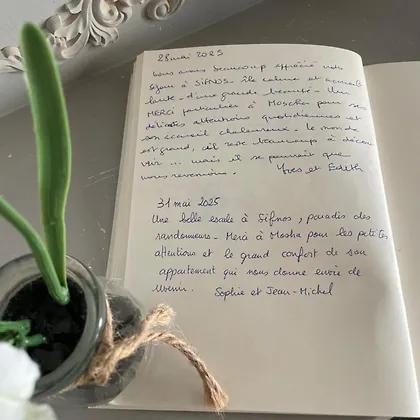 28 mai 2025
Nous avons beaucoup apprécié notre
séjour à SIFNOS - île calme et accueil-
lante - d'une grande beauté - Un
MERCI particulier à Moscha pour ses
délicates attentions quotidiennes et
son accueil chaleureux - Le monde
est grand, il reste beaucoup à décou-
vrir ... mais il se pourrait que
nous revenions. Yves et Edith
31 mai 2025
Une belle escale à Sifnos, paradis des
randonneurs - Merci à Mosha pour les petites
attentions et le grand confort de son
appartement qui nous donne envie de
revenir. Sophie et Jean-Michel